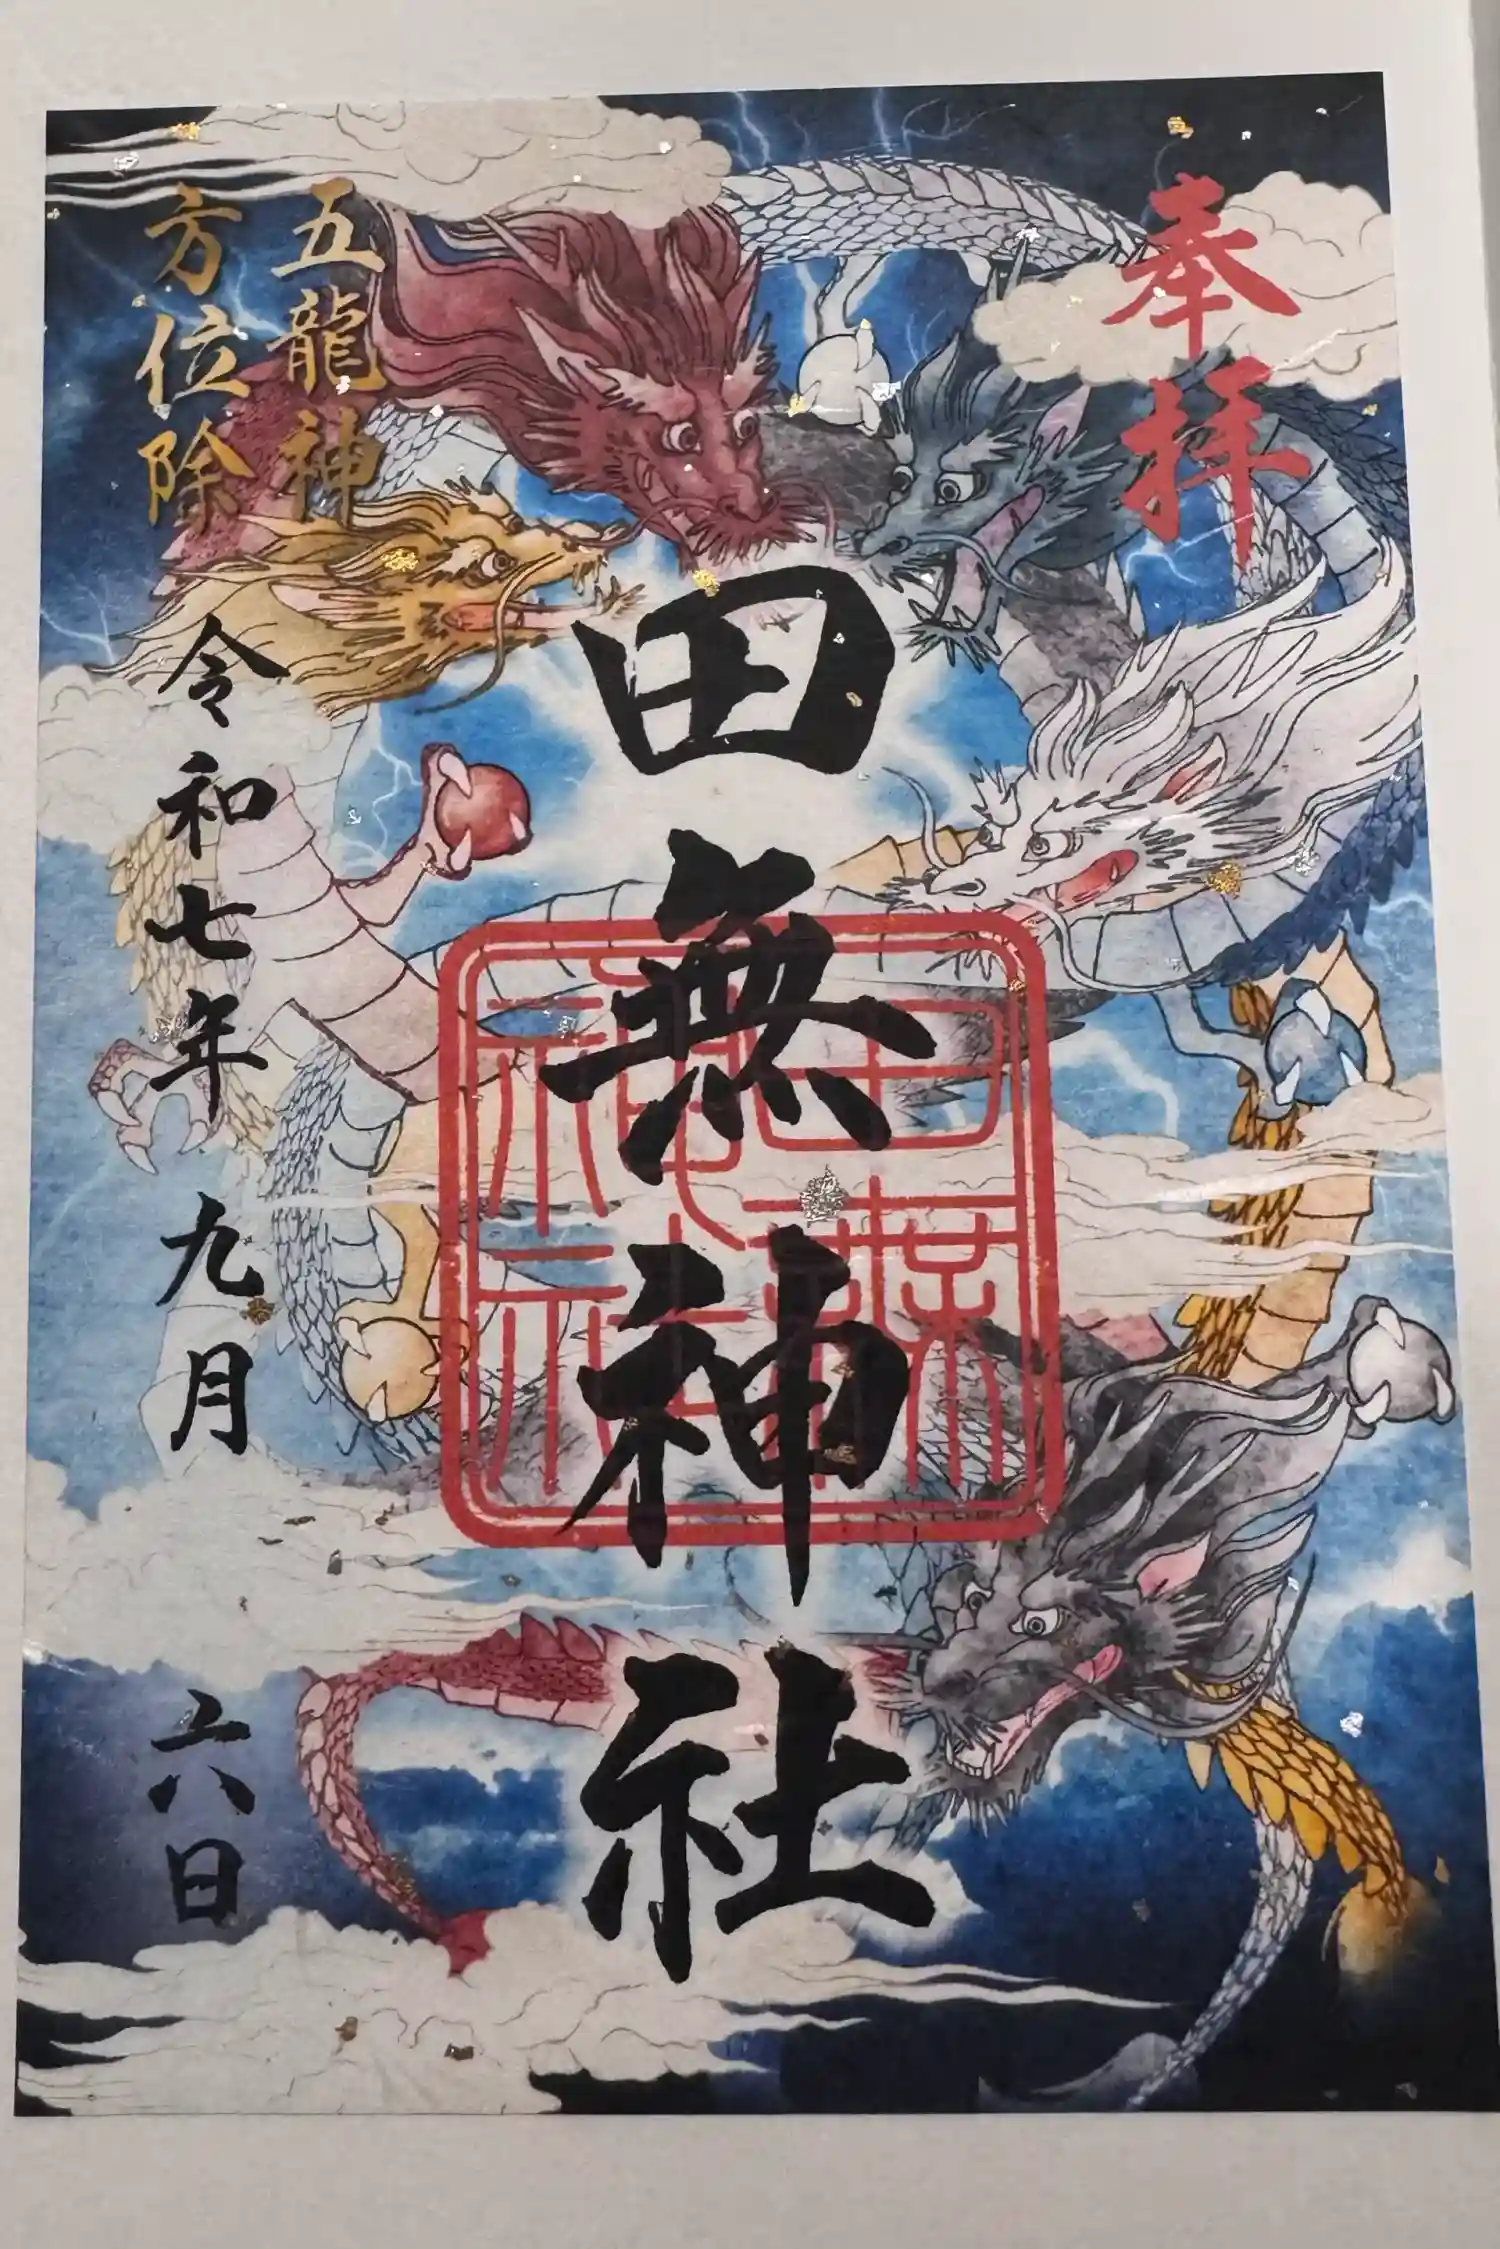 奉拝
田無神社
五龍神
方位除
令和七年九月六日